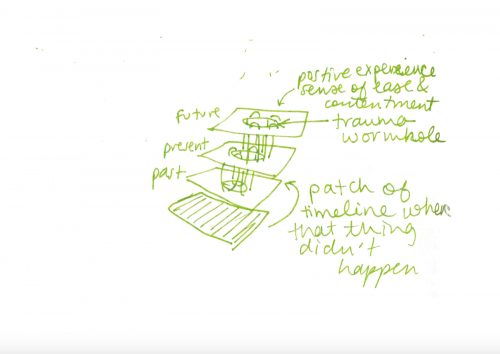 positive experience
sense of ease &
contentment
future
trauma
wormhole
present
past
patch of
timeline where
that thing
didn't
happen